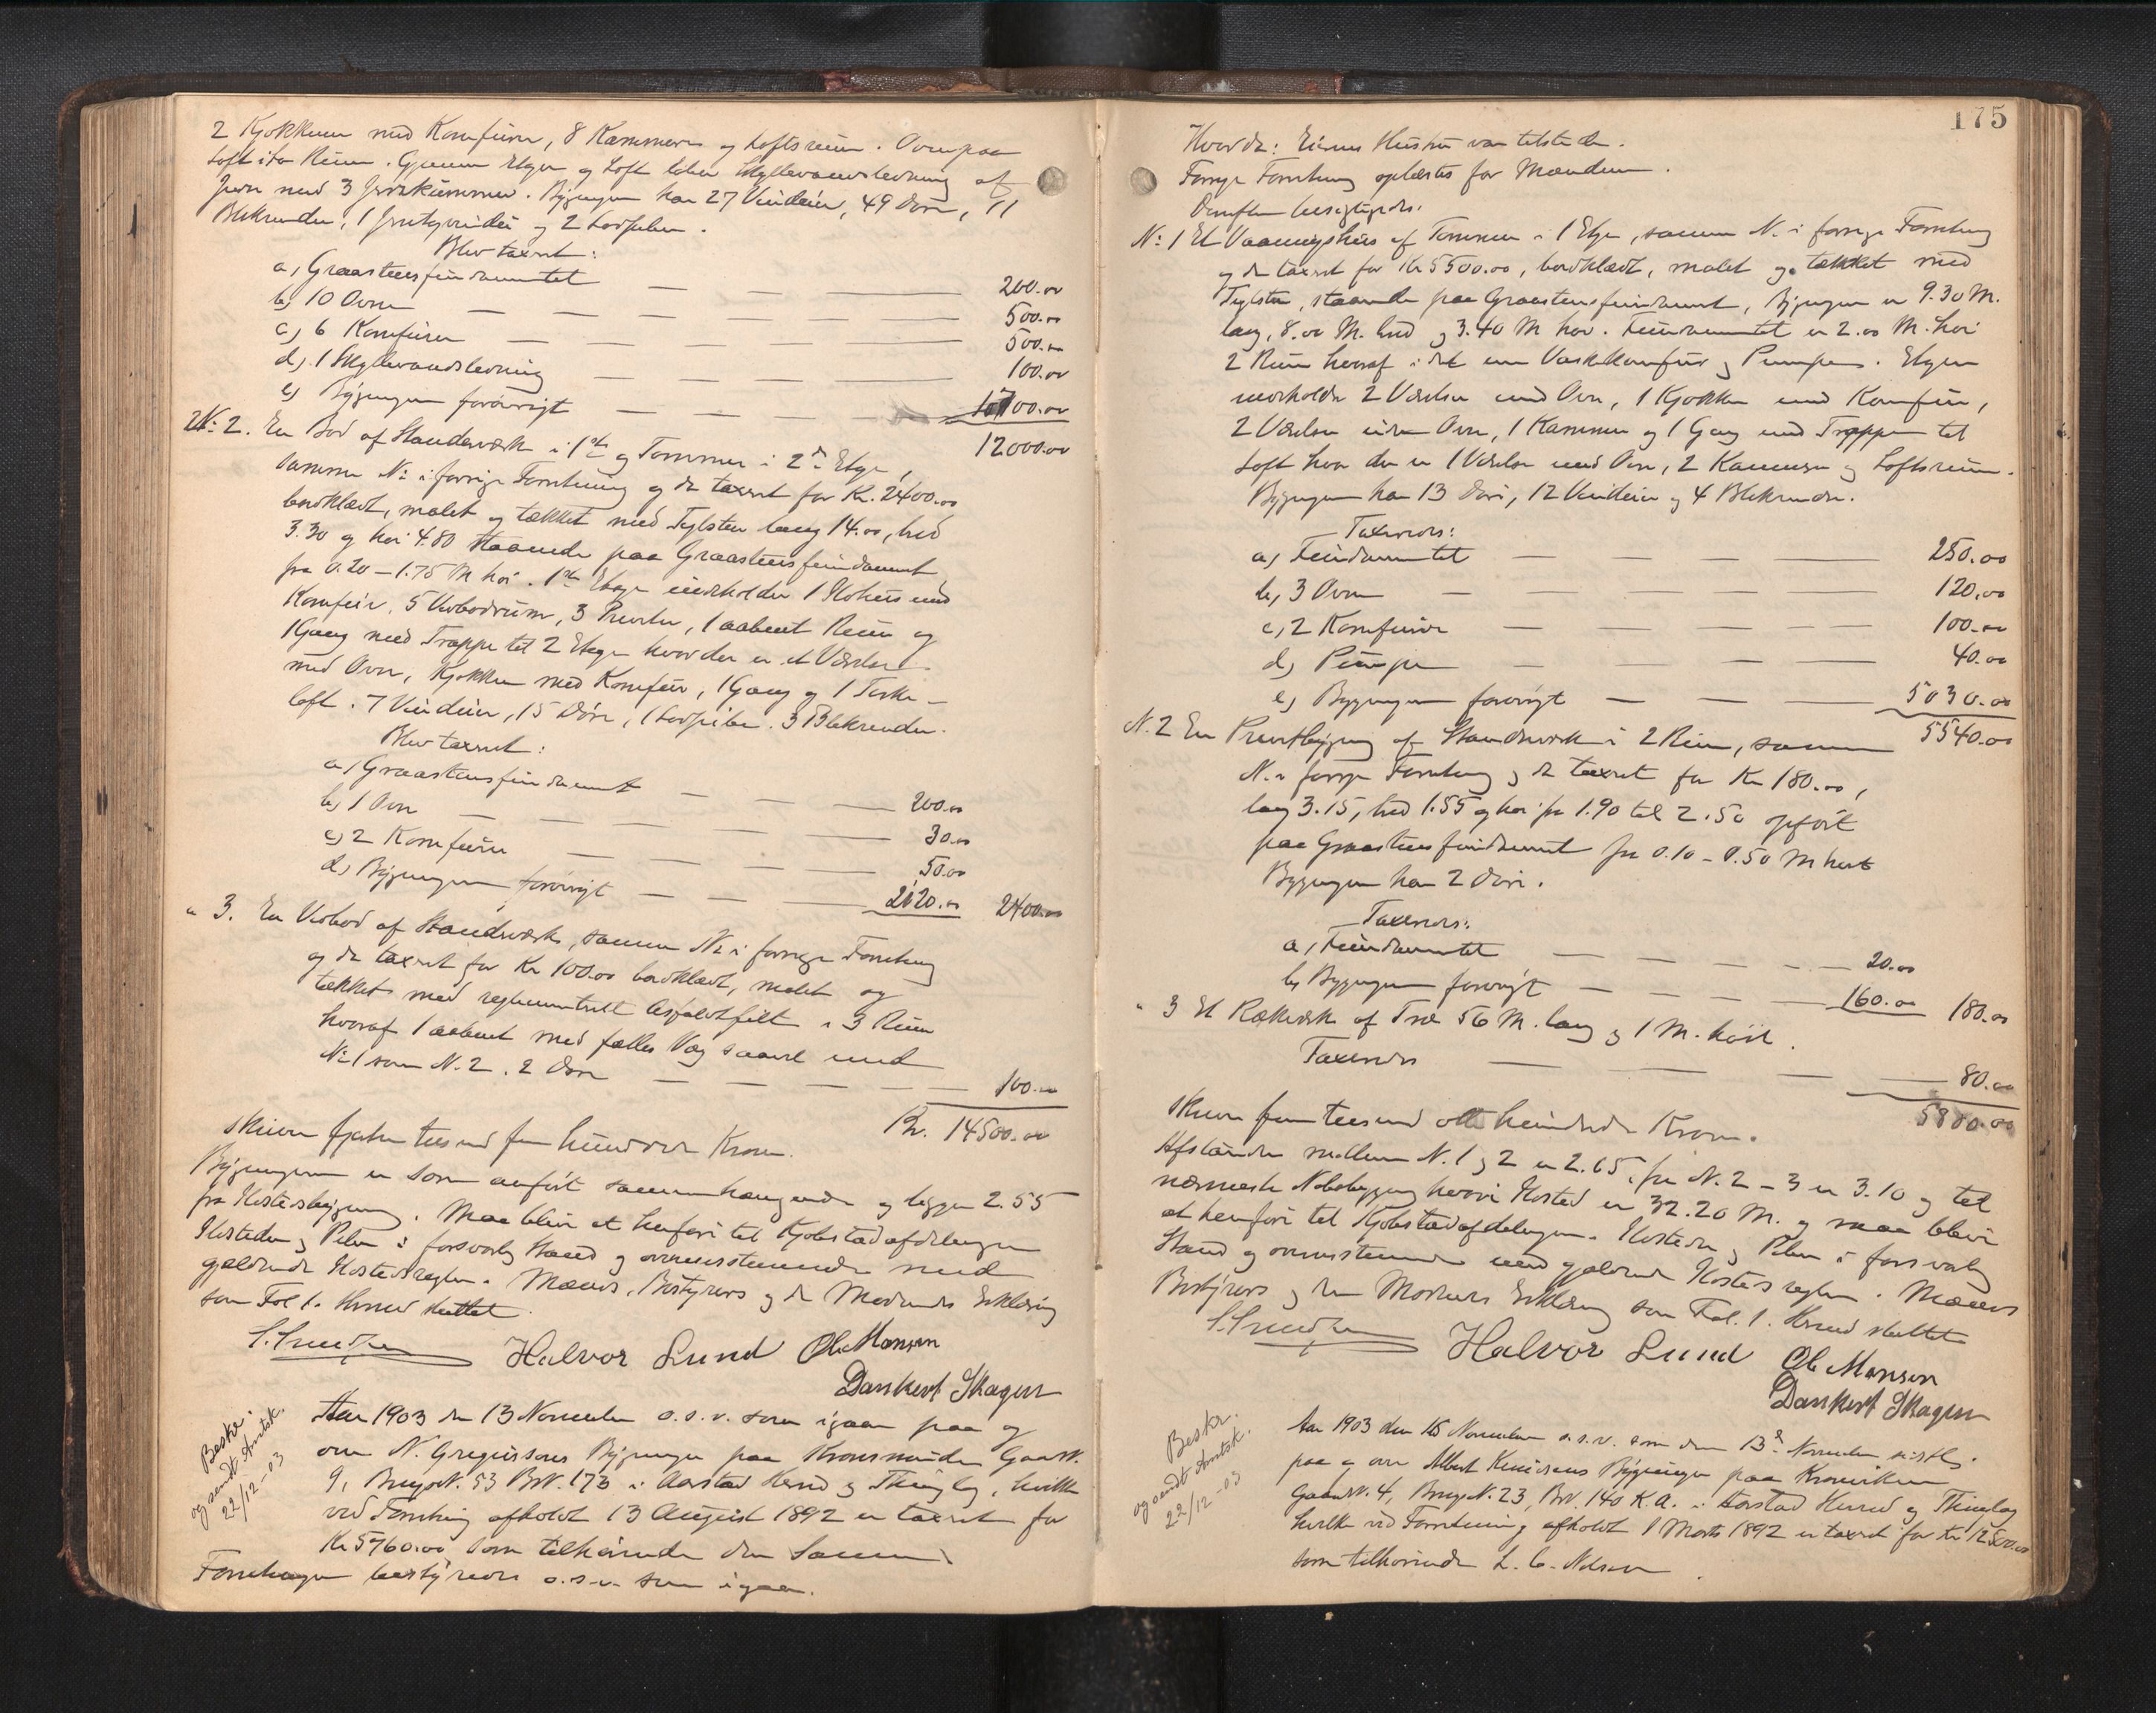 2 Kjøkkener med Komfurer, 8 Kammere og Loftsrum. Ovenpaa
Loft i to Rum. Gjennem Etager og Loft løber Skyllevandsledning af
Jern med 3 Jernkummer. Bygningen har 27 Vinduer, 49 Døre, 11
Blikrender, 1 Vindu og 2 Lodpiber.
Blev taxeret:
a, Graastensfundamentet — — 200.00
b, 10 Ovne — — — — 500.00
c, 6 Komfurer — — — — 500.00
d, 1 Skyllevandsledning — — — 100.00
e, Bygningen forøvrigt — — — 10700.00
12000.00
N: 2. En Bod af Standerværk i 1ste og Tømmer i 2den Etage,
samme N: i forrige Forretning og da taxeret for Kr. 2400.00
bordklædt, malet og tækket med Teglsten lang 14.00, bred
3.30 og høi 4.80 staaende paa Graastensfundament
fra 0.20 – 1.75 M høi. 1ste Etage indeholder 1 Ildhus med
Komfur, 5 Vedbodrum, 3 Priveter, 1 aabent Rum og
1 Gang med Trappe til 2 Etage hvor der er et Værelse
med Ovn, Kjøkken med Komfur, 1 Gang og 1 Tørke-
loft. 7 Vinduer, 15 Døre, 1 Lodpibe. 3 Blikrender.
Blev taxeret:
a, Graastensfundament — — — 200.00
b, 1 Ovn — — — — 30.00
c, 2 Komfurer — — — — 50.00
d, Bygningen forøvrigt — — — 2120.00 2400.00
" 3. En Vedbod af Standerværk, samme N: i forrige Forretning
og da taxeret for Kr 100.00 bordklædt, malet og
tækket med reglementeret Asfaltfilt i 3 Rum
hvoraf 1 aabent med fælles Væg saavel med
N: 1 som N. 2. 2 Døre — — — — — 100.00
Kr. 14500.00
skriver fjorten tusend fem hundrede Kroner.
Bygningerne er som anført sammenhængende og ligger 2.55
fra Ildstedsbygning. Maa blive at henføre til Kjøbstadafdelingen
Ildsteder og Piber i forsvarlig Stand og overensstemmende med
gjældende Ildstedsregler. Mænds, Bestyrers og de Mødendes Erklæring
som Fol 1. Hermed sluttet.
Halvor Lund Ole Monsen
Dankert Skagen
Beskr.
og sendt Amtsk.
22/12-03
Aar 1903 den 13 November o.s.v. som igaar paa og
over N. Gregersens Bygninger paa Kronsminde Gaard N.
9, Brugs N. 53 BN. 173 i Aarstad Herred og Thinglag, hvilke
ved Forretning afholdt 13 August 1892 er taxeret for
Kr 5760.00 som tilhørende den Samme.
Forretningen bestyredes o.s.v. som igaar.
175
Hvorda: Eierens Hustru var tilstede.
Forrige Forretning oplæstes for Mændene.
Derefter besigtigedes:
N: 1 Et Vaaningshus af Tømmer i 1 Etage, samme N. i forrige Forretning
og da taxeret for Kr 5500.00, bordklædt, malet og tækket med
Teglsten, staaende paa Graastensfundament, Bygningen er 9.30 M.
lang, 8.00 M. bred og 3.40 M høi. Fundamentet er 2.00 M. høi
2 Rum hvoraf i det ene Vaskekomfur og Pumpe. Etagen
indeholder 2 Værelser med Ovn, 1 Kjøkken med Komfur,
2 Værelser uden Ovn, 1 Kammer og 1 Gang med Trappe til
Loft hvor der er 1 Værelse med Ovn, 2 Kammere og Loftsrum.
Bygningen har 13 Døre, 12 Vinduer og 4 Blikrender.
Taxeredes:
a, Fundamentet — — — 250.00
b, 3 Ovne — — — — 120.00
c, 2 Komfurer — — — — 100.00
d, Pumpen — — — — 40.00
e, Bygningen forøvrigt — — — 5030.00
5540.00
N. 2 En Privetbygning af Standerværk i 2 Rum, samme
N. i forrige Forretning og da taxeret for Kr 180.00,
lang 3.15, bred 1.55 og høi fra 1.90 til 2.50 opført
paa Graastensfundament fra 0.10 – 0.50 M høit
Bygningen har 2 Døre.
Taxeredes:
a, Fundamentet — — — — 20.00
b, Bygningen forøvrigt — — — — 160.00 180.00
" 3 Et Rækværk af Træ 56 M. lang og 1 M. høit.
Taxeredes — — — 80.00
5800.00
skriver fem tusend otte hundrede Kroner.
Afstanden mellem N. 1 og 2 er 2.65, fra N. 2 – 3 er 3.10 og til
nærmeste Nabobygning hvori Ildsted er 32.20 M. og maa blive
at henføre til Kjøbstadafdelingen. Ildsteder og Piber i forsvarlig
Stand og overensstemmende med gjældende Ildstedsregler. Mænds
Bestyrers og den Mødendes Erklæring som Fol. 1. Hermed sluttet
Halvor Lund Ole Monsen
Dankert Skagen
Beskr.
og sendt Amtsk.
22/12-03
Aar 1903 den 16 November o.s.v. som den 13de November sidstl.
paa og over Albert Knudsens Bygninger paa Kronviken
Gaards N. 4, Brugs N. 23, BN. 140 K.A. i Aarstad Herred og Thinglag
hvilke ved Forretning afholdt 1 Marts 1892 er taxeret for Kr 12500.00
som tilhørende L. C. Nilsen.